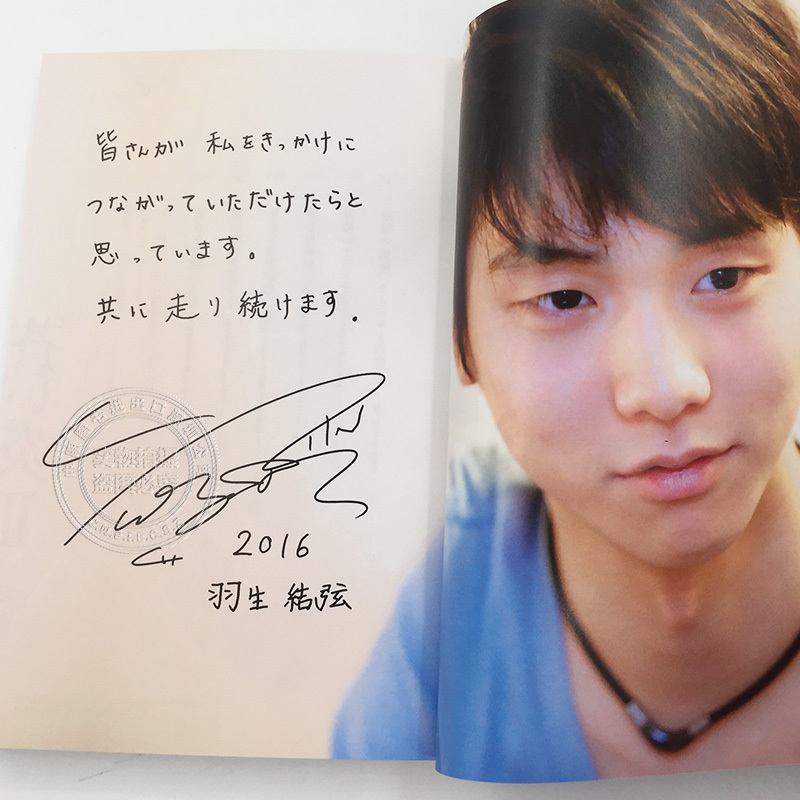 皆さんが 私をきっかけに
つながっていただけたらと
思っています。
共に走り続けます。
2016
羽生結弦